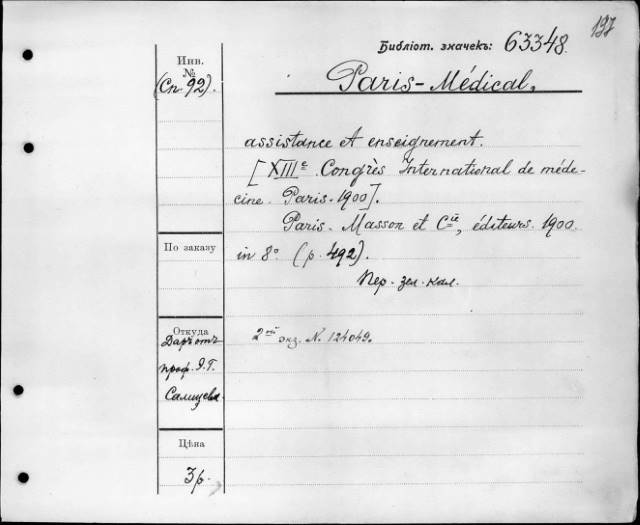 197
Библіот. значекъ: 63348.
Инв.
№
(Сп 92).
Paris-Médical,
assistance et enseignement.
[XIIIe Congrès International de méde-
cine. Paris-1900].
Paris. Masson et Cie, éditeurs. 1900.
in 8° (p. 492).
Пер. зел. кол.
По заказу
Откуда
Даръ отъ
проф. Э.Г.
Салищева.
2ой экз. N. 124049.
Цѣна
3р.